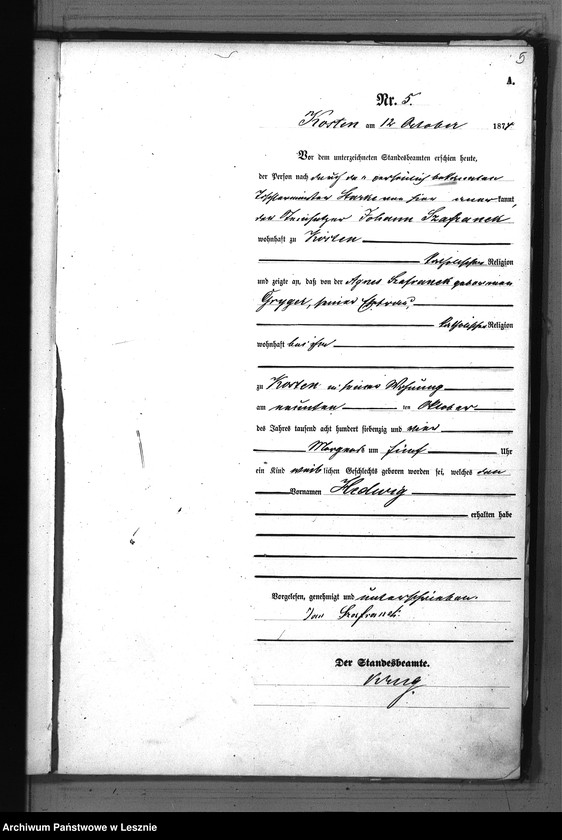 5
A.
Nr. 5.
Kosten am 12 October 1874
Vor dem unterzeichneten Standesbeamten erschien heute,
der Person nach durch den persönlich bekannten
Starke von hier anerkannt,
der Steinsetzer Johann Szafranek
wohnhaft zu Kosten
katholischer Religion
und zeigte an, daß von der Agnes Szafranek geborenen
Gryger, seiner Ehefrau,
katholischer Religion
wohnhaft bei ihm
zu Kosten in seiner Wohnung
am neunten ten Oktober
des Jahres tausend acht hundert siebenzig und vier
Morgends um fünf Uhr
ein Kind weiblichen Geschlechts geboren worden sei, welches den
Vornamen Hedwig
erhalten habe
Vorgelesen, genehmigt und unterschrieben.
Jan Szafranek
Der Standesbeamte.
Archiwum Państwowe w Lesznie